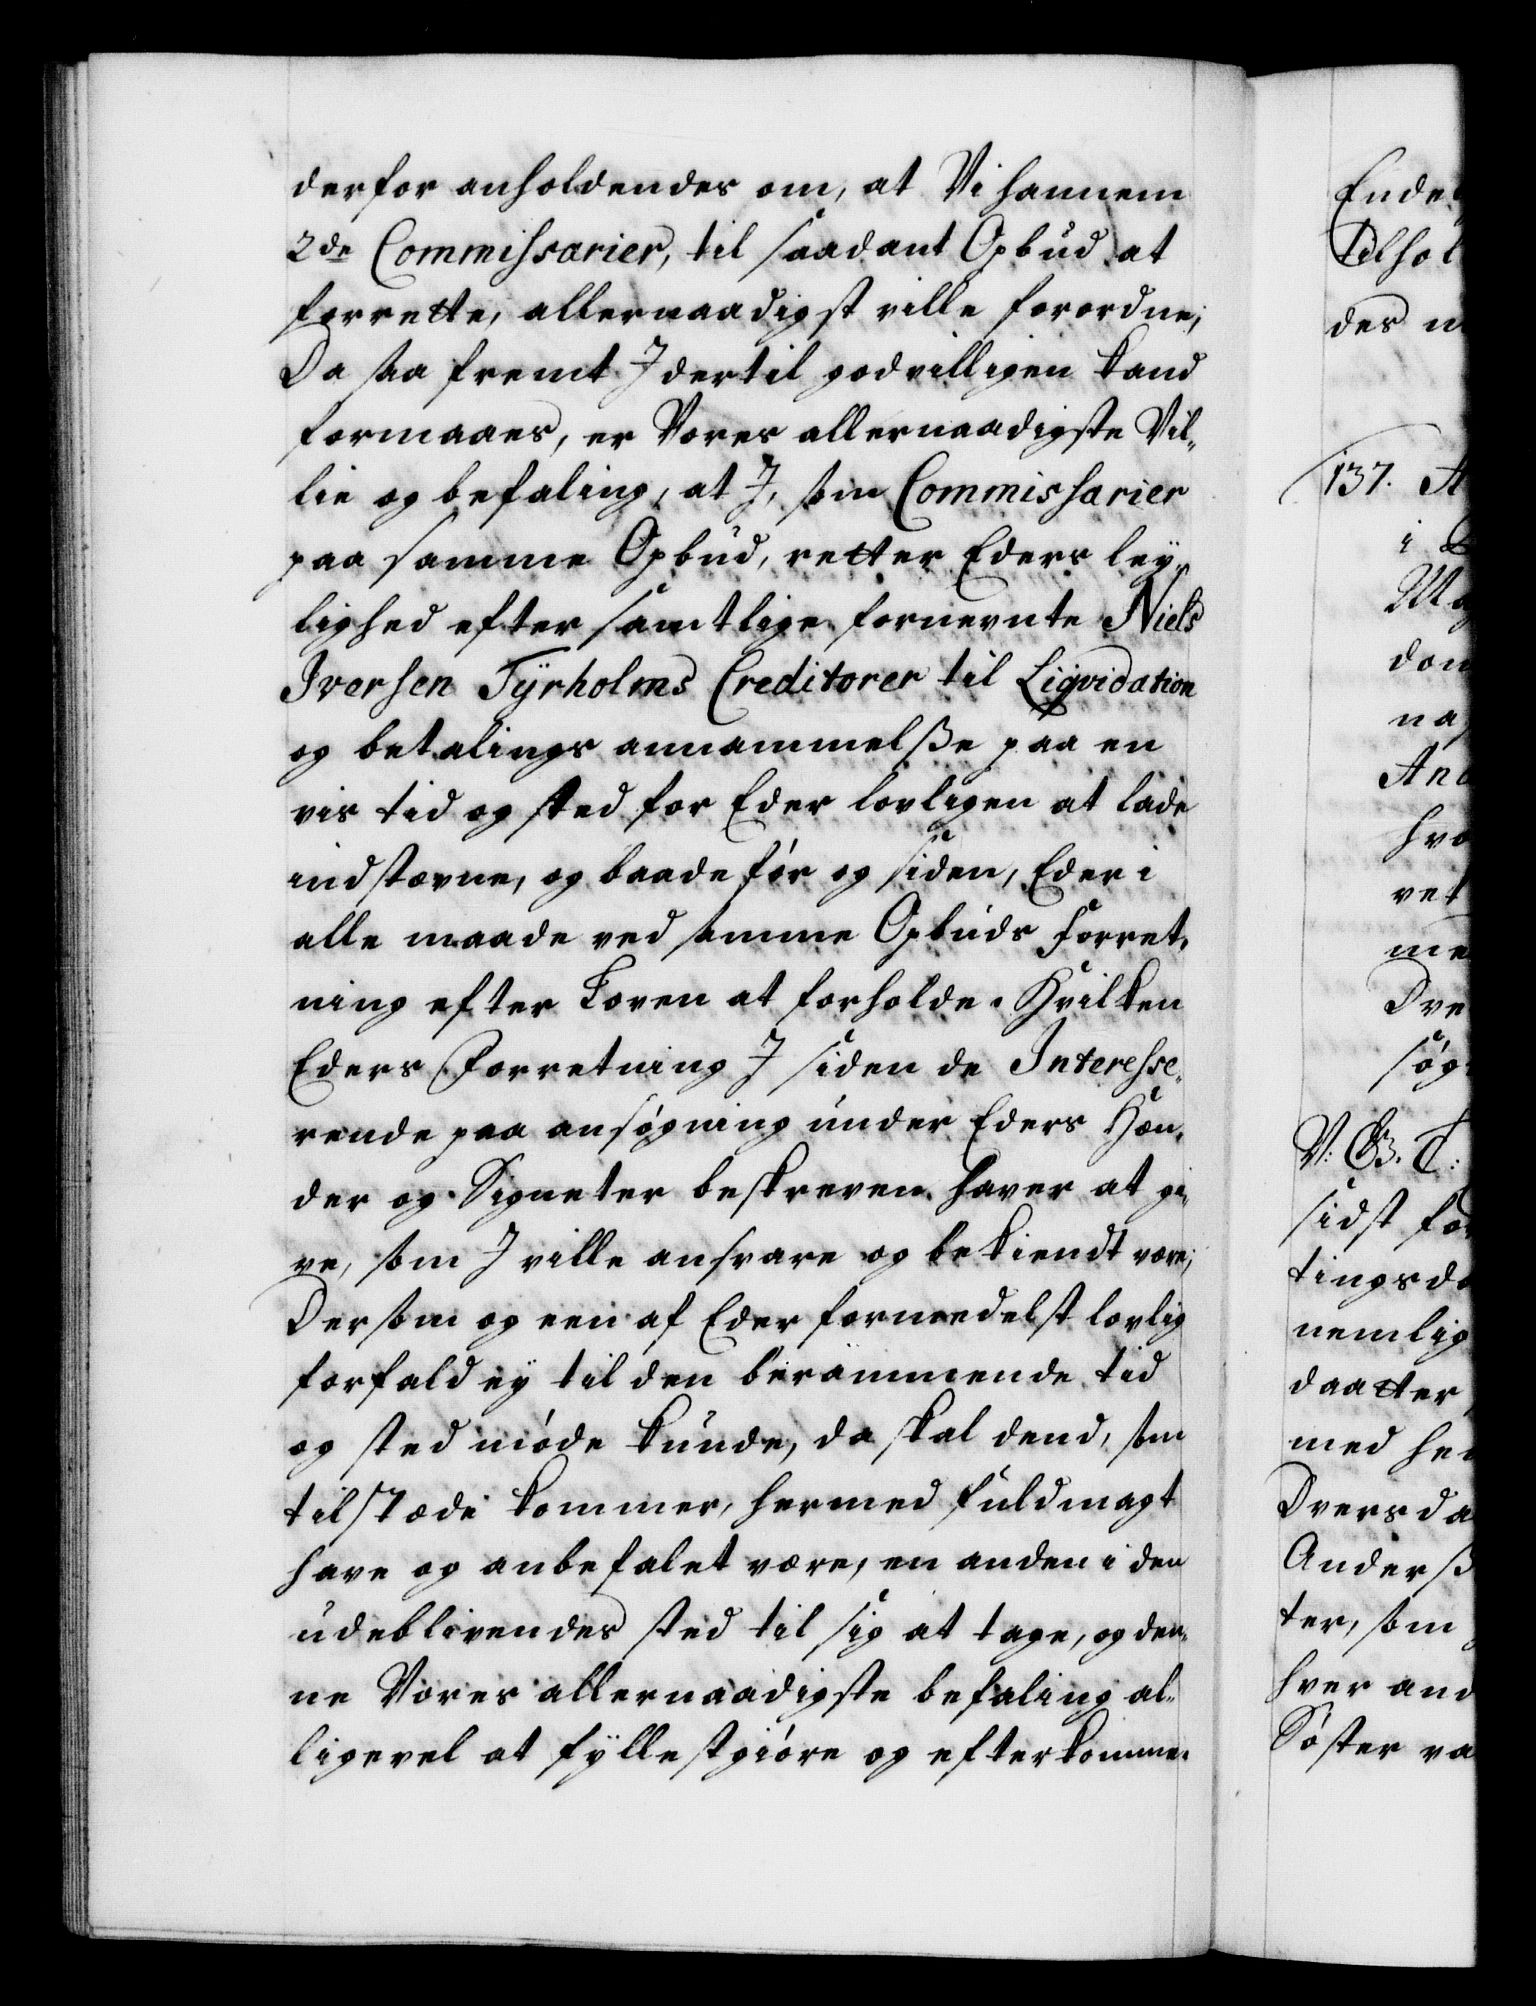 derfor anholdendes om, at Vi hannem
2de Commissarier, til saadant Opbud at
forrette, allernaadigst ville forordne;
Da saa fremt I dertil godvilligen kand
formaaes, er Vores allernaadigste Vil-
lie og befaling, at I, som Commissarier
paa samme Opbud, retter Eders ley-
lighed efter samtlige fornevnte Niels
Iversen Tÿrholms Creditorer til Liqvidation
og betalings annammelsse paa en
vis tid og sted for Eder lovligen at lade
indstævne, og baade før og siden, Eder i
alle maade ved samme Opbuds Forret-
ning efter Loven at forholde. Hvilken
Eders Forretning I siden de Interesse-
rende paa ansøgning under Eders Hæn-
der og Signeter beskreven haver at gi-
ve, som I ville ansvare og bekiendt være;
Dersom og een af Eder formedelst lovlig
forfald eÿ til den berammende tid
og sted møde kunde, da skal dend, som
tilstæde kommer, hermed fuldmagt
have og anbefalet være, en anden i den
udeblivendes sted til sig at tage, og den-
ne Vores allernaadigste befaling al-
ligevel at fÿllestgiøre og efterkomme.
Ende
Tilhol
des
137. A
i
dom
And
hvo
vet
me
Ove
søg
V: G. T:
sidst for
tingsda
nemlig
daatter
med he
Oversda
Anderss
ter, som
hver and
Søster va